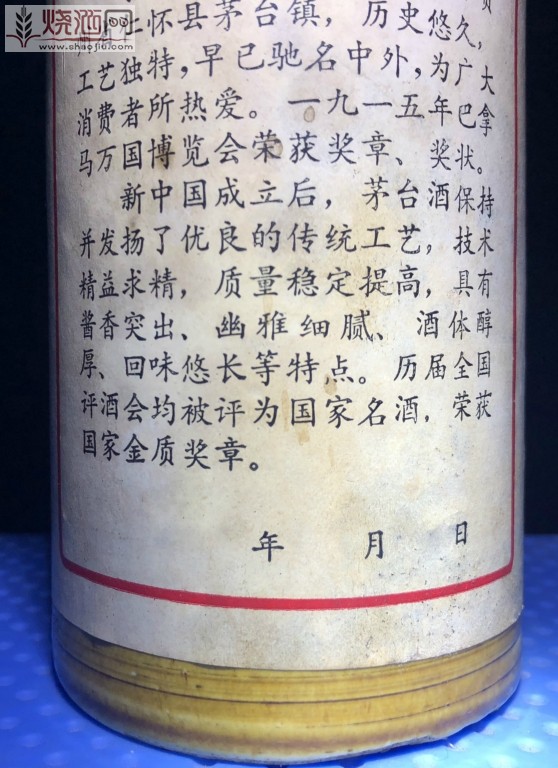 烧酒网
www.shaojiu.com
怀县茅台镇，历史悠久，
工艺独特，早已驰名中外，为广大
消费者所热爱。一九一五年巴拿
马万国博览会荣获奖章、奖状。
新中国成立后，茅台酒保持
并发扬了优良的传统工艺，技术
精益求精，质量稳定提高，具有
酱香突出、幽雅细腻、酒体醇
厚、回味悠长等特点。历届全国
评酒会均被评为国家名酒，荣获
国家金质奖章。
年 月 日